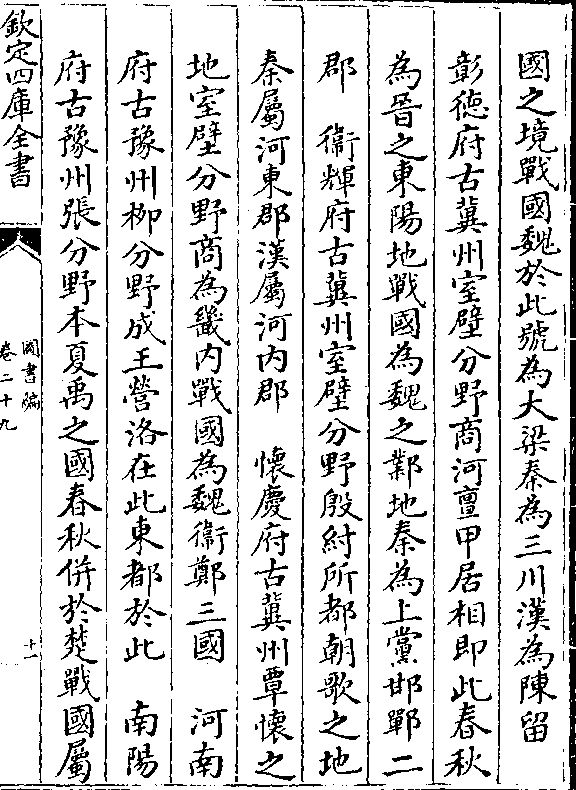 國之境戰國魏於此號為大梁秦為三川漢為陳留
彰德府古冀州室壁分野商河亶甲居相即此春秋
為晉之東陽地戰國為魏之鄴地秦為上黨邯鄲二
郡　衞輝府古冀州室壁分野殷紂所都朝歌之地
秦屬河東郡漢屬河内郡　懷慶府古冀州覃懷之
地室壁分野商為畿内戰國為魏衞鄭三國　河南
府古豫州柳分野成王營洛在此東都於此　南陽
府古豫州張分野本夏禹之國春秋併於楚戰國屬
欽定四庫全書
圖書編
卷二十九
十一